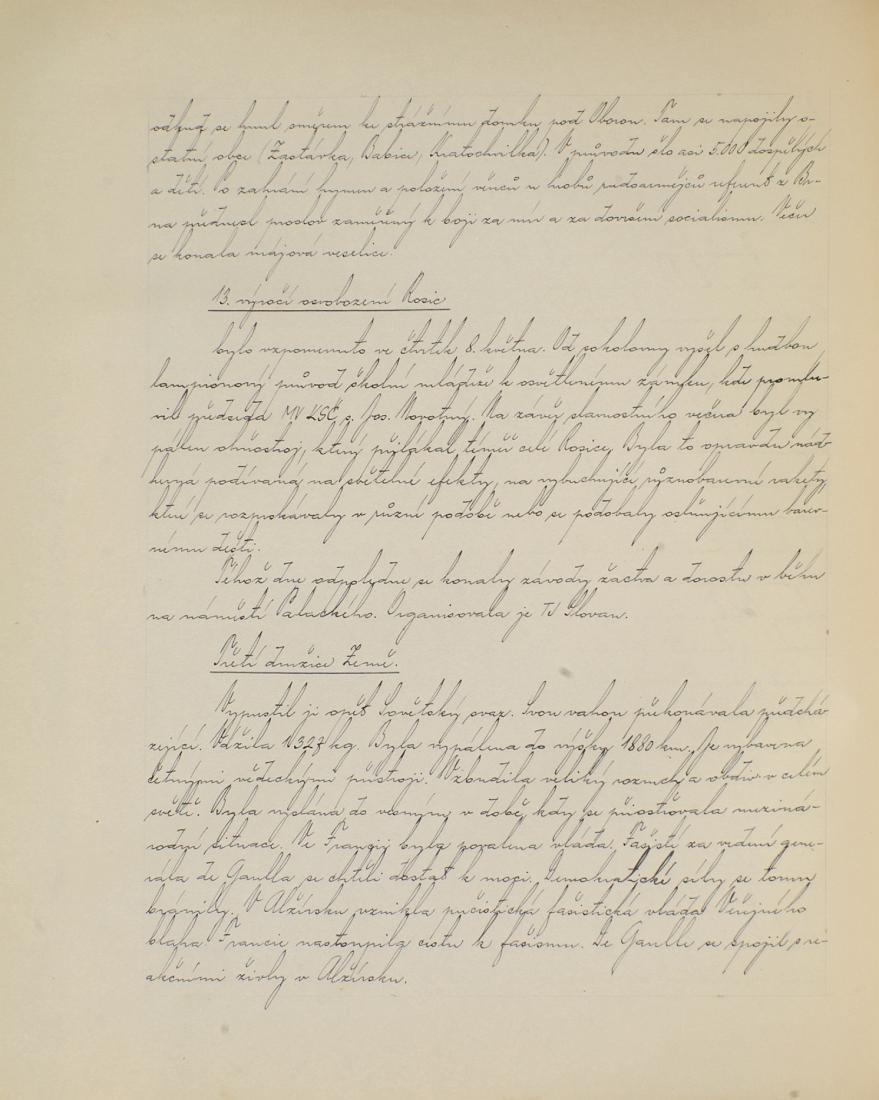 odkud se hnul směrem ke strážnímu domku pod Oborou. Tam se napojily o-
statní obce (Zastávka, Babice, Kratochvilka). V průvodu šlo asi 5.000 dospělých
a dětí. Po zahrání hymen a položení věnců u hrobů rudoarmějců referent z Br-
na přednesl proslov zaměřený k boji za mír a za dovršení socialismu. Večer
se konala májová veselice.
13. výročí osvobození Rosic
bylo vzpomenuto ve čtvrtek 8. května. Od sokolovny vyšel s hudbou
lampionový průvod školní mládeže k osvětlenému zámku, kde promlu-
vil předseda MV KSČ s. Jos. Novotný. Na závěr slavnostního večera byl vy
pálen ohňostroj, který přilákal téměř celé Rosice. Byla to opravdu nád-
herná podívaná na světelné efekty, na vybuchující různobarevné rakety,
které se rozprskávaly v různé podobě nebo se podobaly oslňujícímu barev-
nému dešti.
Téhož dne odpoledne se konaly závody žactva a dorostu v běhu
na náměstí Palackého. Organisovala je TJ Slovan.
Třetí družice Země.
Vypustil ji opět Sovětský svaz. Svou vahou překonávala předchá
zející. Vážila 1327 kg. Byla vypálena do výšky 1880 km. Je vybavena
četnými vědeckými přístroji. Vzbudila veliký rozruch a obdiv v celém
světě. Byla vyslána do vesmíru v době, kdy se přiostřovala meziná-
rodní situace. Ve Francii byla povalena vláda. Fašisté za vedení gene-
rála de Gaulla se chtěli dostat k moci. Demokratické síly se tomu
bránily. V Alžírsku vznikla pučistická fašistická vláda Veřejného
blaha. Francie nastoupila cestu k fašismu. De Gaulle se spojil s re-
akčními živly v Alžírsku.